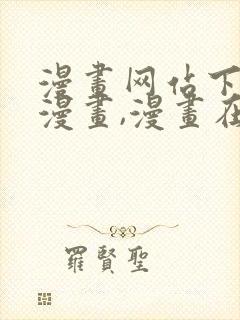 漫畫网估下
漫畫,漫畫在
羅賢聖